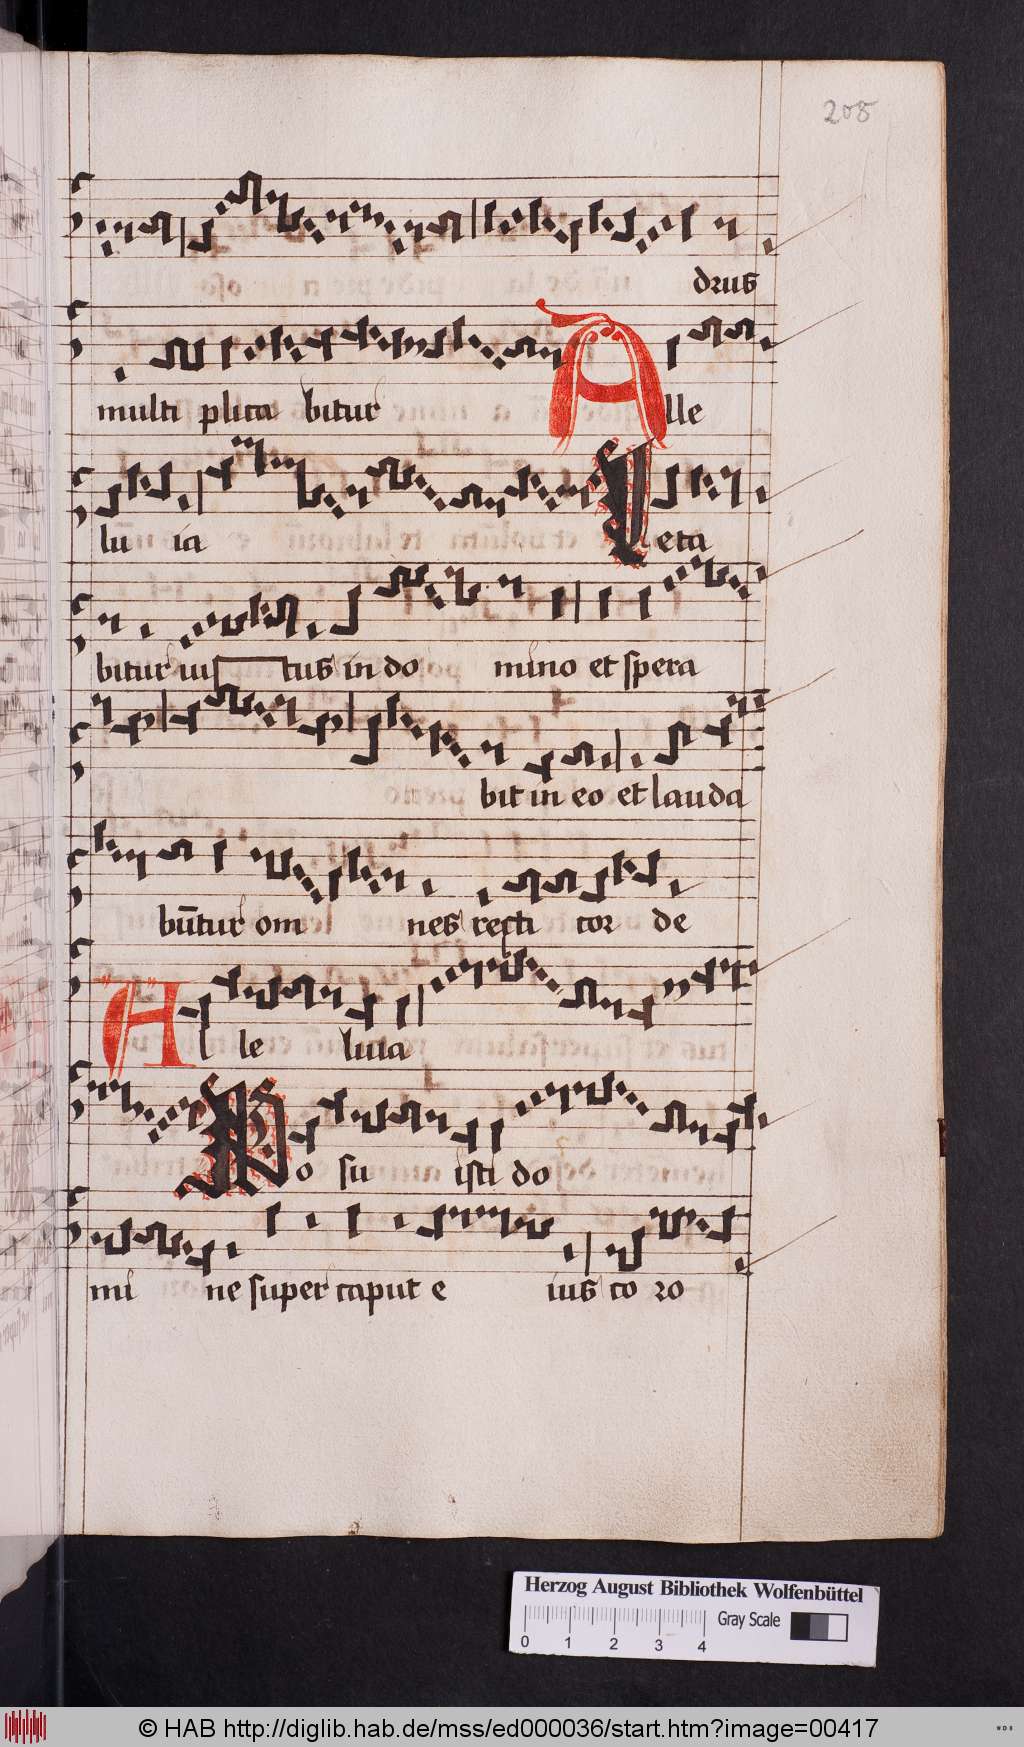 208
drus
multi plica bitur Alle
lu ia Leta
bitur ius tus in do mino et spera
bit in eo et lauda
būtur om nes recti cor de
Al le luia
Po su isti do
mi ne super caput e ius co ro
Herzog August Bibliothek Wolfenbüttel
Gray Scale
0 1 2 3 4
© HAB http://diglib.hab.de/mss/ed000036/start.htm?image=00417